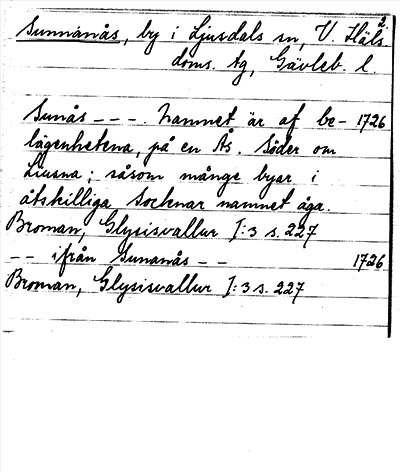 2.
Sunnanås, by i Ljusdals sn, V. Häls.
doms. tg, Gävleb. l.
Sunås - - - . Namnet är af be- 1726
lägenhetena, på en Ås. Söder om
Liusna; såsom många byar i
åtskilliga Socknar namnet äga.
Broman, Glysisvallur I:3 s. 227
- - ifrån Sunanås - - 1726
Broman, Glysisvallur I:3 s. 227